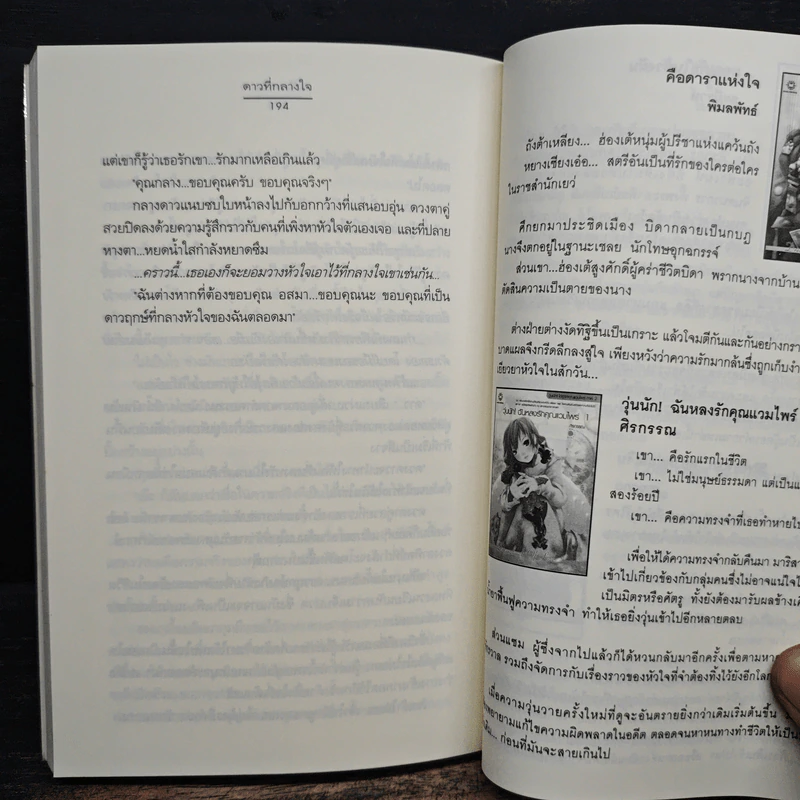 ดาวที่กลางใจ
194
แต่เขาก็รู้ว่าเธอรักเขา...รักมากเหลือเกินแล้ว
"คุณกลาง...ขอบคุณครับ ขอบคุณจริงๆ"
กลางดาวแนบซบใบหน้าลงไปกับอกกว้างที่แสนอบอุ่น ดวงตาคู่
สวยปิดลงด้วยความรู้สึกราวกับคนที่เพิ่งหาหัวใจตัวเองเจอ และที่ปลาย
หางตา...หยดน้ำใสกำลังหยาดซึม
...คราวนี้...เธอเองก็จะยอมวางหัวใจเอาไว้ที่กลางใจเขาเช่นกัน...
"ฉันต่างหากที่ต้องขอบคุณ อสมา...ขอบคุณนะ ขอบคุณที่เป็น
ดาวฤกษ์ที่กลางหัวใจของฉันตลอดมา"
คือดาราแห่งใจ
พิมลพัทธ์
ถังต้าเหลียง... ฮ่องเต้หนุ่มผู้ปรีชาแห่งแคว้นถัง
หยางเซียงเอ๋อ... สตรีอันเป็นที่รักของใครต่อใคร
ในราชสำนักเยว่
ศึกยกมาประชิดเมือง บิดากลายเป็นกบฏ
นางจึงตกอยู่ในฐานะเชลย นักโทษอุกฉกรรจ์
ส่วนเขา...ฮ่องเต้สูงศักดิ์ผู้คร่าชีวิตบิดา พรากนางจากบ้าน
ตัดสินความเป็นตายของนาง
ต่างฝ่ายต่างงัดทิฐิขึ้นเป็นเกราะ แล้วโจมตีกันและกันอย่าง
บาดแผลจึงกรีดลึกลงสู่ใจ เพียงหวังว่าความรักมากล้นซึ่งถูกเก็บงำ
เยียวยาหัวใจในสักวัน...
วุ่นนัก! ฉันหลงรักคุณแวมไพร์ 1
วุ่นนัก! ฉันหลงรักคุณแวมไพร์
ศิรกรรณ
เขา... คือรักแรกในชีวิต
เขา... ไม่ใช่มนุษย์ธรรมดา แต่เป็น
สองร้อยปี
เขา... คือความทรงจำที่เธอทำหายไป
เพื่อให้ได้ความทรงจำกลับคืนมา มาริสา
เข้าไปเกี่ยวข้องกับกลุ่มคนซึ่งไม่อาจแน่ใจ
เป็นมิตรหรือศัตรู ทั้งยังต้องมารับผลข้าง
ฟื้นฟูความทรงจำ ทำให้เธอยิ่งวุ่นเข้าไปอีกหลายตลบ
ส่วนแซม ผู้ซึ่งจากไปแล้วก็ได้หวนกลับมาอีกครั้งเพื่อตามหา
รวมถึงจัดการกับเรื่องราวของหัวใจที่จำต้องทิ้งไว้ยังอีกโลก
เมื่อความวุ่นวายครั้งใหม่ที่ดูจะอันตรายยิ่งกว่าเดิมเริ่มต้นขึ้น
พยายามแก้ไขความผิดพลาดในอดีต ตลอดจนหาหนทางทำชีวิตให้เป็น
ก่อนที่มันจะสายเกินไป